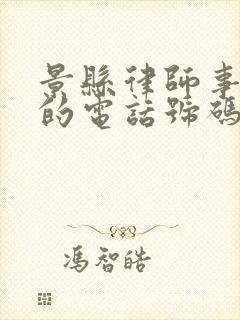 景縣律師事
的電話號碼
馮智皓